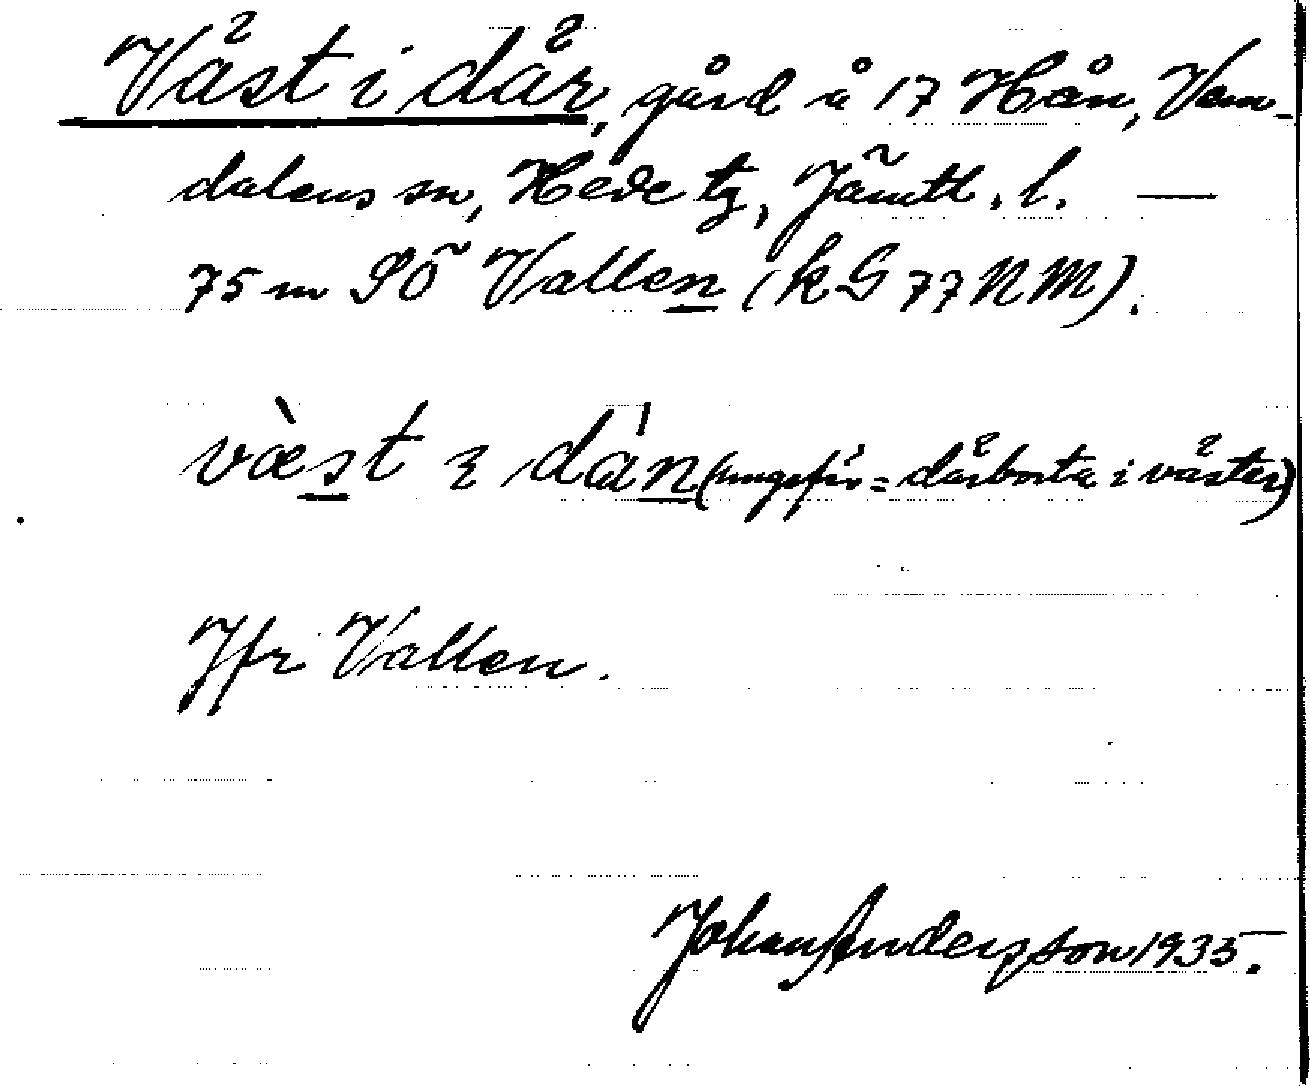 Väst i där, gård å 17 Hån, Vem-
dalens sn, Hede tg, Jämtl. l. —
75 m SÖ Vallen (kG 77 NM).
væ̀st ı dán (ungefär = därborta i väster)
Jfr Vallen.
Johan Andersson 1935.